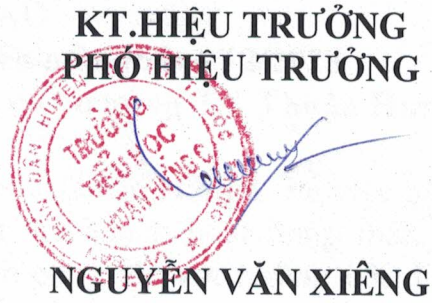 KT.HIỆU TRƯỞNG
PHÓ HIỆU TRƯỞNG
TRƯỜNG
TIỂU HỌC
NGUYỄN VĂN XIÊNG